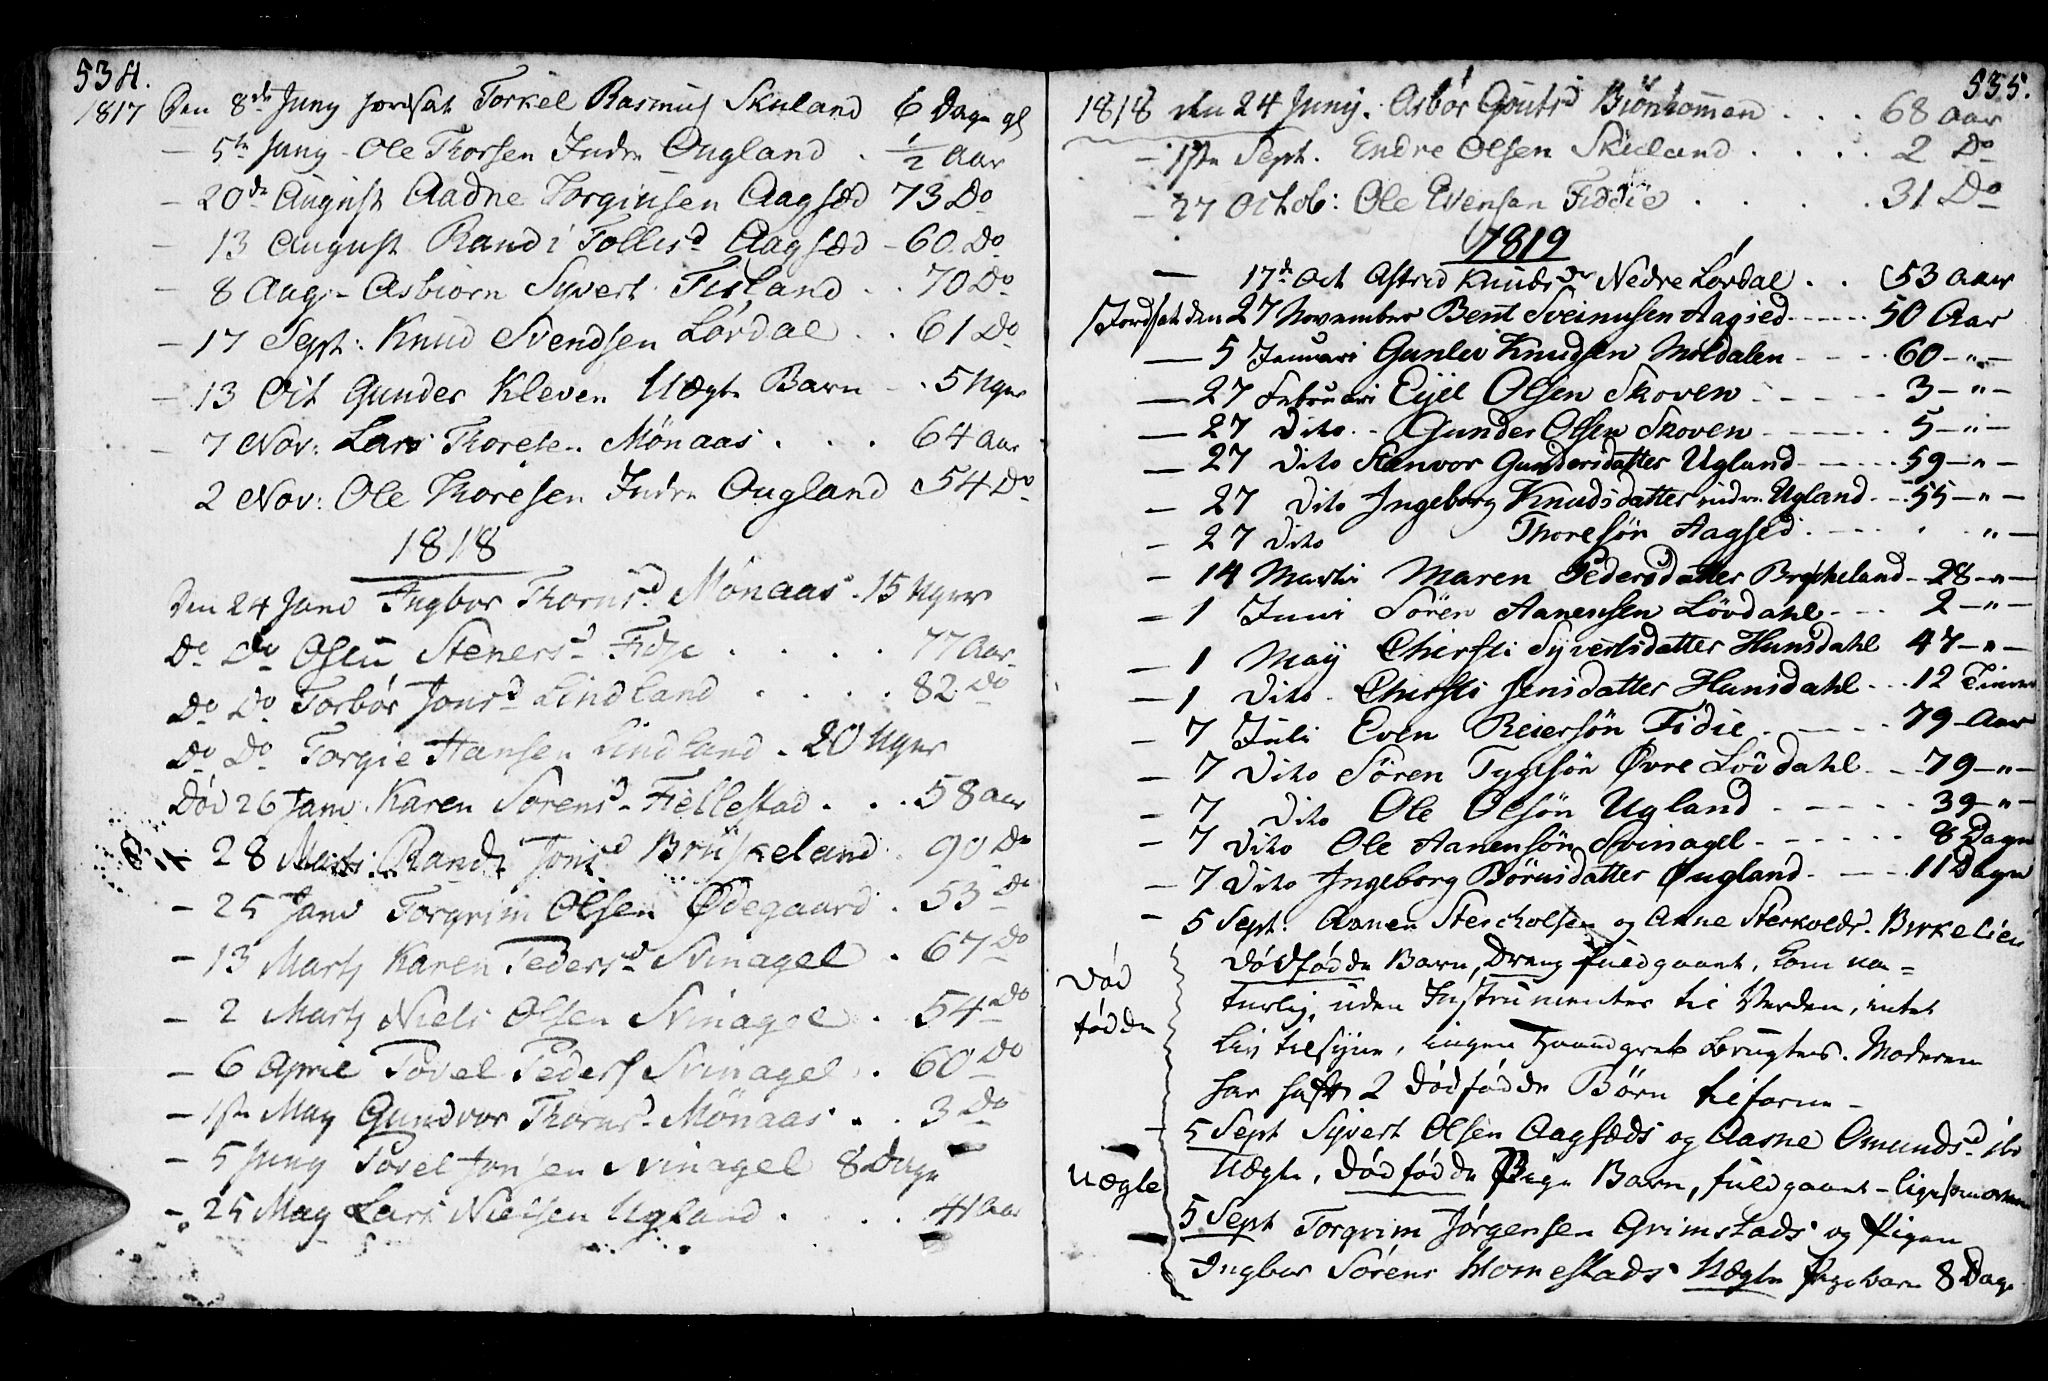 534.
1817 Den 8de Juny Jordsat Torkel Rasmus Skuland 6 Dage gl
— 5te Juny - Ole Thorsen Indre Ougland . ½ Aar
— 20de August Aadne Torgiusen Aagsæd 73 Do
— 13 August Randi Tollisd Aagsæd - 60 Do
— 8 Aug: - Asbiorn Syvert Fisland . . 70 Do
— 17 Sept: Knud Svendsen Lovdal . . 61 Do
— 13 Oct Gunder Kleven Uægte Barn - . 5 Uger
— 7 Nov: Lars Thoresen Mönaas . . . 64 Aar
2 Nov: Ole Thoresen Indre Ougland 54 Do
1818
Den 24 Janv Ingbor Thorusd Mönaas . 15 Uger
Do Do Oseü Stenersd Fidje . . . . 77 Aar
Do Do Torbor Jonsd Lindland . . . . 82 Do
Do Do Torgie Hansen Lindland . 20 Uger
Død 26 Janv. Karen Sørensd Fiellestad . . . 58 Aar
28 Martz: Randi Jonsd Brüskeland . 90 Do
— 25 Janv Torgrim Olsen Ødegaard . 53 Do
— 13 Martz Karen Pedersd Svinagel . 67 Do
— 2 Martz Niels Olsen Svinagel . . 54 Do
— 6 April Povel Peders Svinagel . . 60 Do
— 1ste May Gundvor Thorusd Mönaas . . . 3 Do
— 5 Juny Povel Jonsen Svinagel 8 Dage
— 25 May Lars Nielsen Ugland . . . . 41 Aar
535.
1818 den 24 Juny. Asbor Goutsd Biönkommen . . . 68 Aar
— 1ste Sept. Endre Olsen Skuland . . . . 2 Do
— 27 Octob: Ole Evensen Fiddie . . . . . 31 Do
1819
— 17d Oct Astrid Knudsdr Nedre Lovdal . . 53 Aar
Jordsat den 27 November Bent Sveinusen Aagsed - - - - 50 Aar
— 5 Januari Gunlev Knudsen Moldalen - - - - 60 - " -
— 27 Februari Eyel Olsen Skoven - - - - - 3 - " -
— 27 Dito . - Gunder Olsen Skoven - - - - - 5 - " -
— 27 Dito Stenvor Gundersdatter Ugland - - - - 59 - " -
— 27 Dito Ingeborg Knudsdatter indre Ugland - - 55 - " -
— 27 Dito Thoresön Aagsed . - - - . " -
— 14 Martii Maren Pedersdatter Brøskeland - 28 - " -
— 1 Juni Sören Aanensen Lövdahl - - - 2 - " -
— 1 May Chirsti Syvertsdatter Hunsdahl 47 - " -
— 1 Dito - Chirsti Jensdatter Hunsdahl - - 12 Timer
— 7 Juli Even Reiersön Fidie . - - - - 79 - Aar
— 7 Dito Sören Tygesön Øvre Lövdahl - - 79 - " -
— 7 Dito Ole Olsön Ugland - - - - - 39 - " -
— 7 Dito Ole Aanensön Svinagel - - - - - - 8 Dage
— 7 Dito Ingeborg Börusdatter Øugland . - - - 11 Dage
— 5 Sept: Aanen Sterkolsen og Anne Sterkoldsd. Birkelien
Død
fødde
dödfødde Barn, Dreng fuldgaaet, kom na=
turlig, uden Instrumenter til Verden, intet
Liv tilsyne, ingen Haandgreb brugtes. Moderen
har haft 2 dödfødde Börn tilforn -
— 5 Sept Syvert Olsen Aagsæds og Aasne Omundsd ibd
Uægte
Uægte, dödfødde Pige Barn, fuldgaaet -
5 Sept Torgrim Jørgensen Grimstads og Pigen
Ingbor Sörens Homestads Uægte Pigebarn 8 Dage